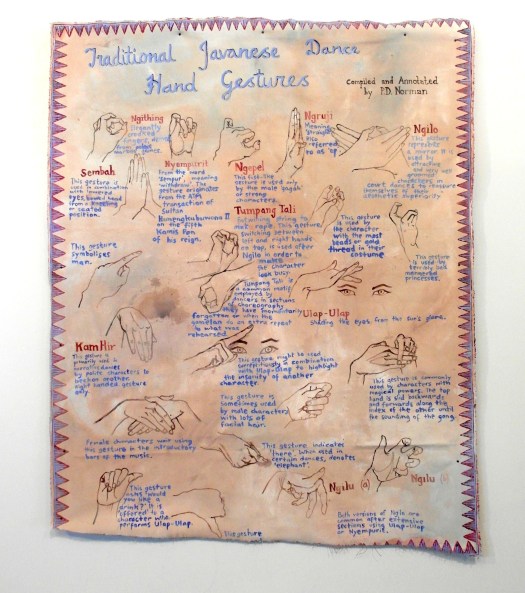 Traditional Javanese Dance
Hand Gestures
Compiled and Annotated
by P.D. Norman
Ngithing
Nyempurit
From the word
'Sempur', meaning
'withdraw'. The
gesture originates
from the
transaction of
Sultan
on the fifth
Kamis Pon
of his reign.
Ngepel
This fist-like
gesture is used only
by the male 'gagah'
or strong
characters.
Ngruji
Meaning
referred
to as
Ngilo
This gesture
represents
a mirror. It is
used by
court dancers to reassure
themselves of their
aesthetic superiority
Sembah
This gesture is
used in combination
with lowered
eyes, bowed head
from a kneeling
or seated
position.
Tumpang Tali
switching between
left and right hands
on top, is used after
Ngilo in order to
make
the character
look busy.
This gesture
is used by
the character
with the most
beads or gold
thread in their
costume
This gesture
is used by
terribly well
mannered
princesses.
This gesture
symbolises
man.
Tumpang Tali is
a common motif
employed by
dancers in sections
of choreography
they have momentarily
forgotten or when the
gamelan is an extra repeat
to what was
rehearsed.
Ulap-Ulap
shading the eyes from the sun's glare.
Kam Hir
This gesture is
primarily used in
narrative dances
by polite characters to
beckon another.
Left handed gesture
only.
This gesture might be used
in combination
with Ulap-Ulap to highlight
the insanity of another
character.
This gesture is commonly
used by characters with
magical powers. The top
hand is slid backwards
and forwards along the
index of the other until
the sounding of the gong.
This gesture is
sometimes used
by male characters
with lots of
facial hair.
Female characters wait using
this gesture in the introductory
bars of the music.
This gesture indicates
'here'. When used in
certain dances, denotes
'elephant'.
This gesture
asks 'would
you like a
drink?' It is
offered to a
character who
performs Ulap-Ulap.
This gesture
(a)
Both versions of Ngilu are
common after extensive
sections using Ulap-Ulap
or Nyempurit.